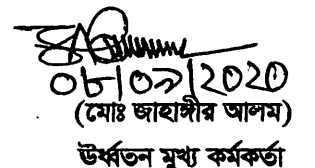 ০৮/০৯/২০২০
(মোঃ জাহাঙ্গীর আলম)
ঊর্ধ্বতন মুখ্য কর্মকর্তা